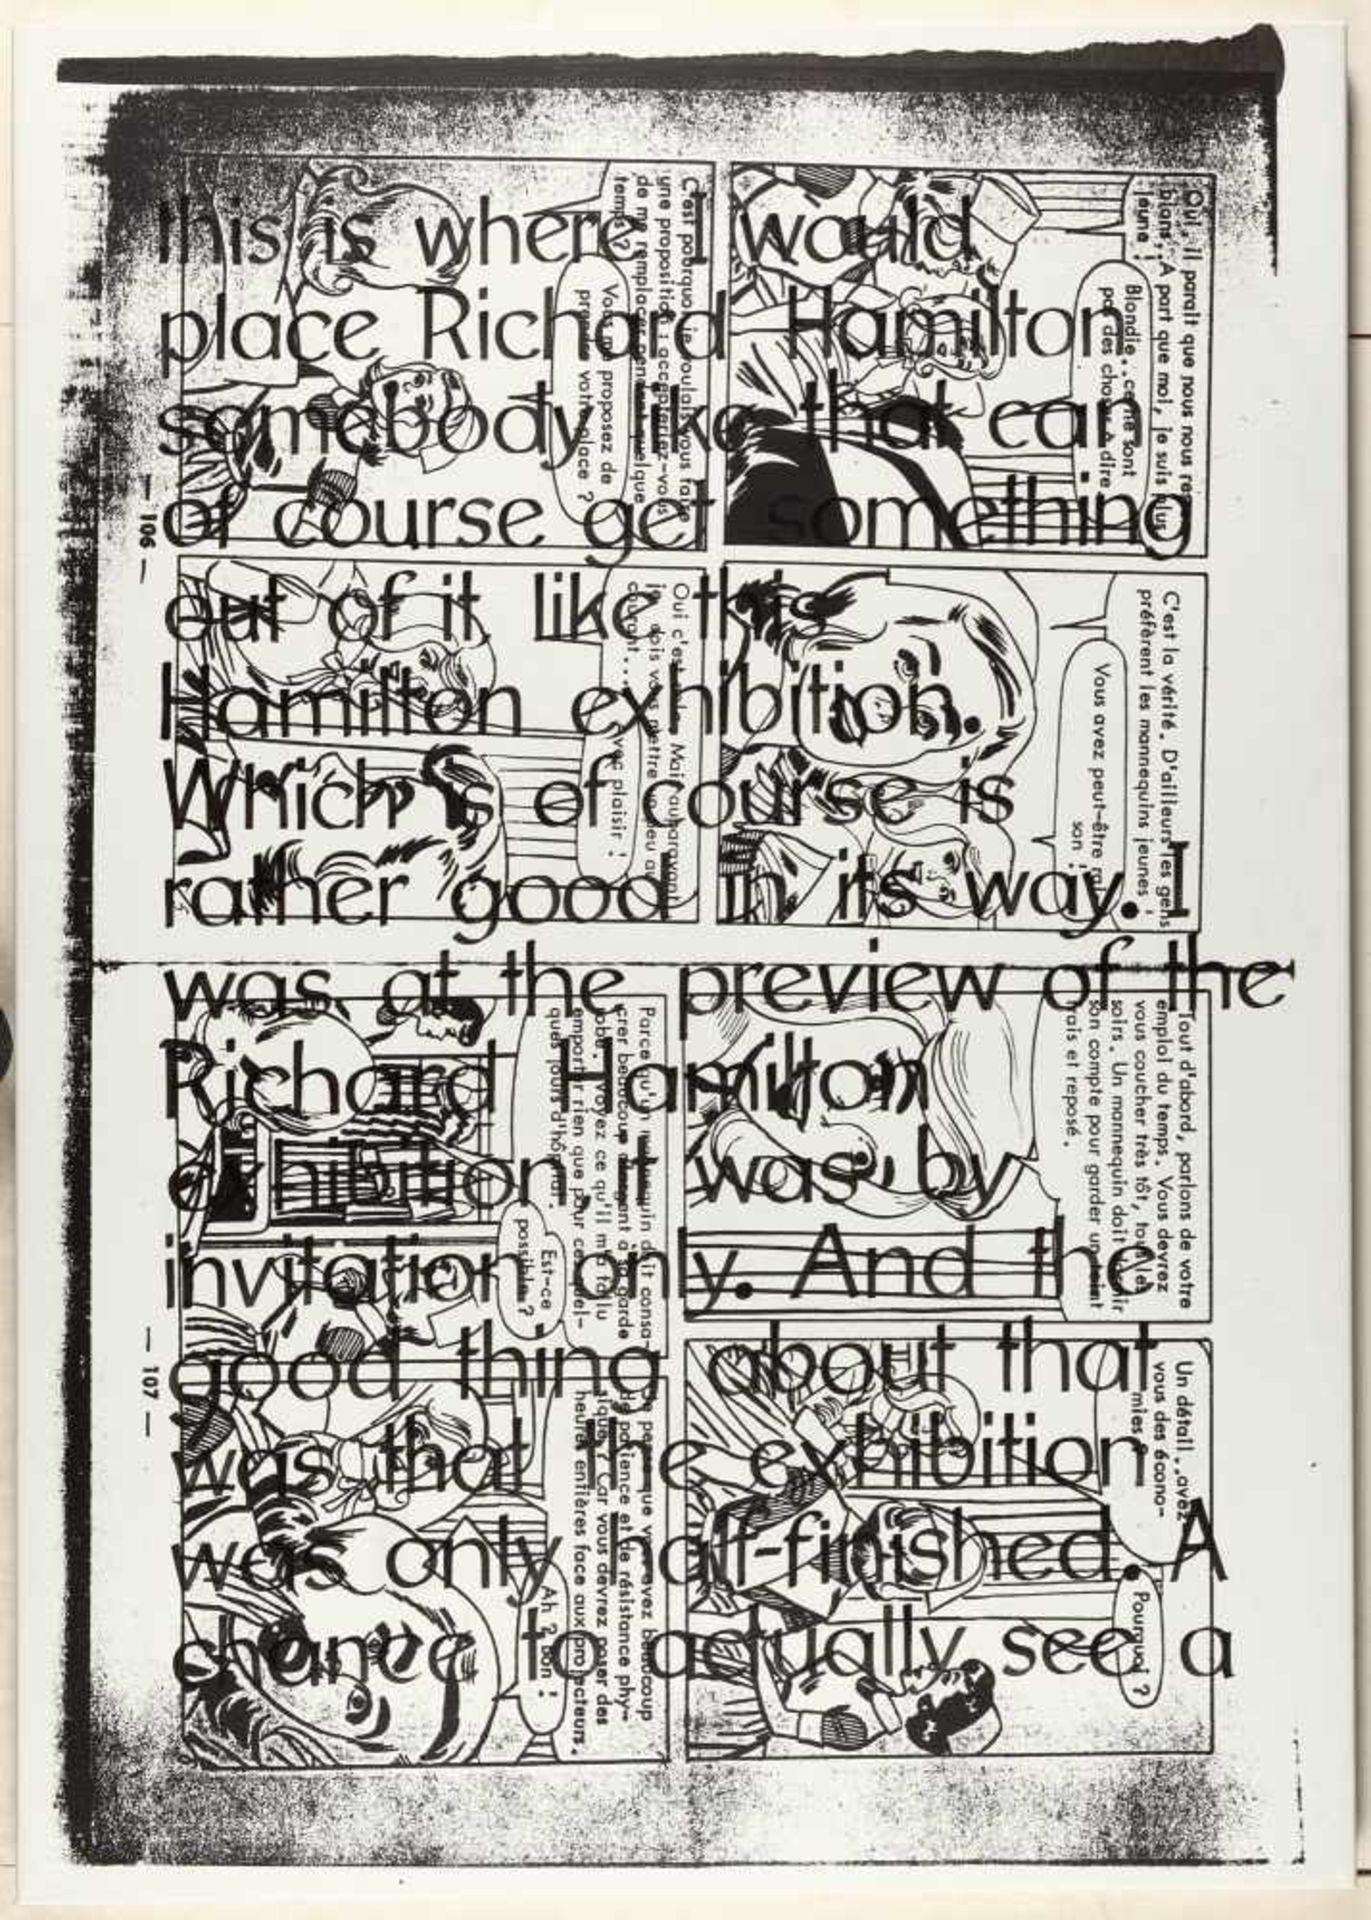 this is where I would
place Richard Hamilton
somebody like that can
of course get something
out of it, like this
Hamilton exhibition.
Which is of course is
rather good in its way. I
was at the preview of the
Richard Hamilton
exhibition, it was by
invitation only. And the
good thing about that
was that the exhibition
was only half-finished. A
chance to actually see a
Oui, il paraît que nous nous
blons.. A part que moi, je suis plus
jeune !
Blondie.. ce ne sont
pas des choses à dire
C'est pourquoi je voulais vous faire
une proposition : accepteriez-vous
de me remplacer pendant quelque
temps ?
Vous me proposez de
prendre votre place ?
C'est la vérité. D'ailleurs les gens
préfèrent les mannequins jeunes !
Vous avez peut-être
son !
Oui c'est Mais auparavant
je dois vous mettre au
courant...
Avec plaisir !
— 106 —
Tout d'abord, parlons de votre
emploi du temps. Vous devrez
vous coucher très tôt, tous les
soirs. Un mannequin doit
son compte pour garder un teint
frais et reposé.
Parce qu'un mannequin doit consa-
crer beaucoup d'argent à sa garde
robe. Voyez ce qu'il m'a fallu
emporter rien que pour ces quel-
ques jours d'hôpital.
Est-ce
possible ?
Un détail.. avez
vous des écono-
mies ?
Pourquoi ?
Je pense que vous avez beaucoup
de patience et de résistance phy-
sique ? Car vous devrez poser des
heures entières face aux projecteurs.
Ah ? bon !
— 107 —